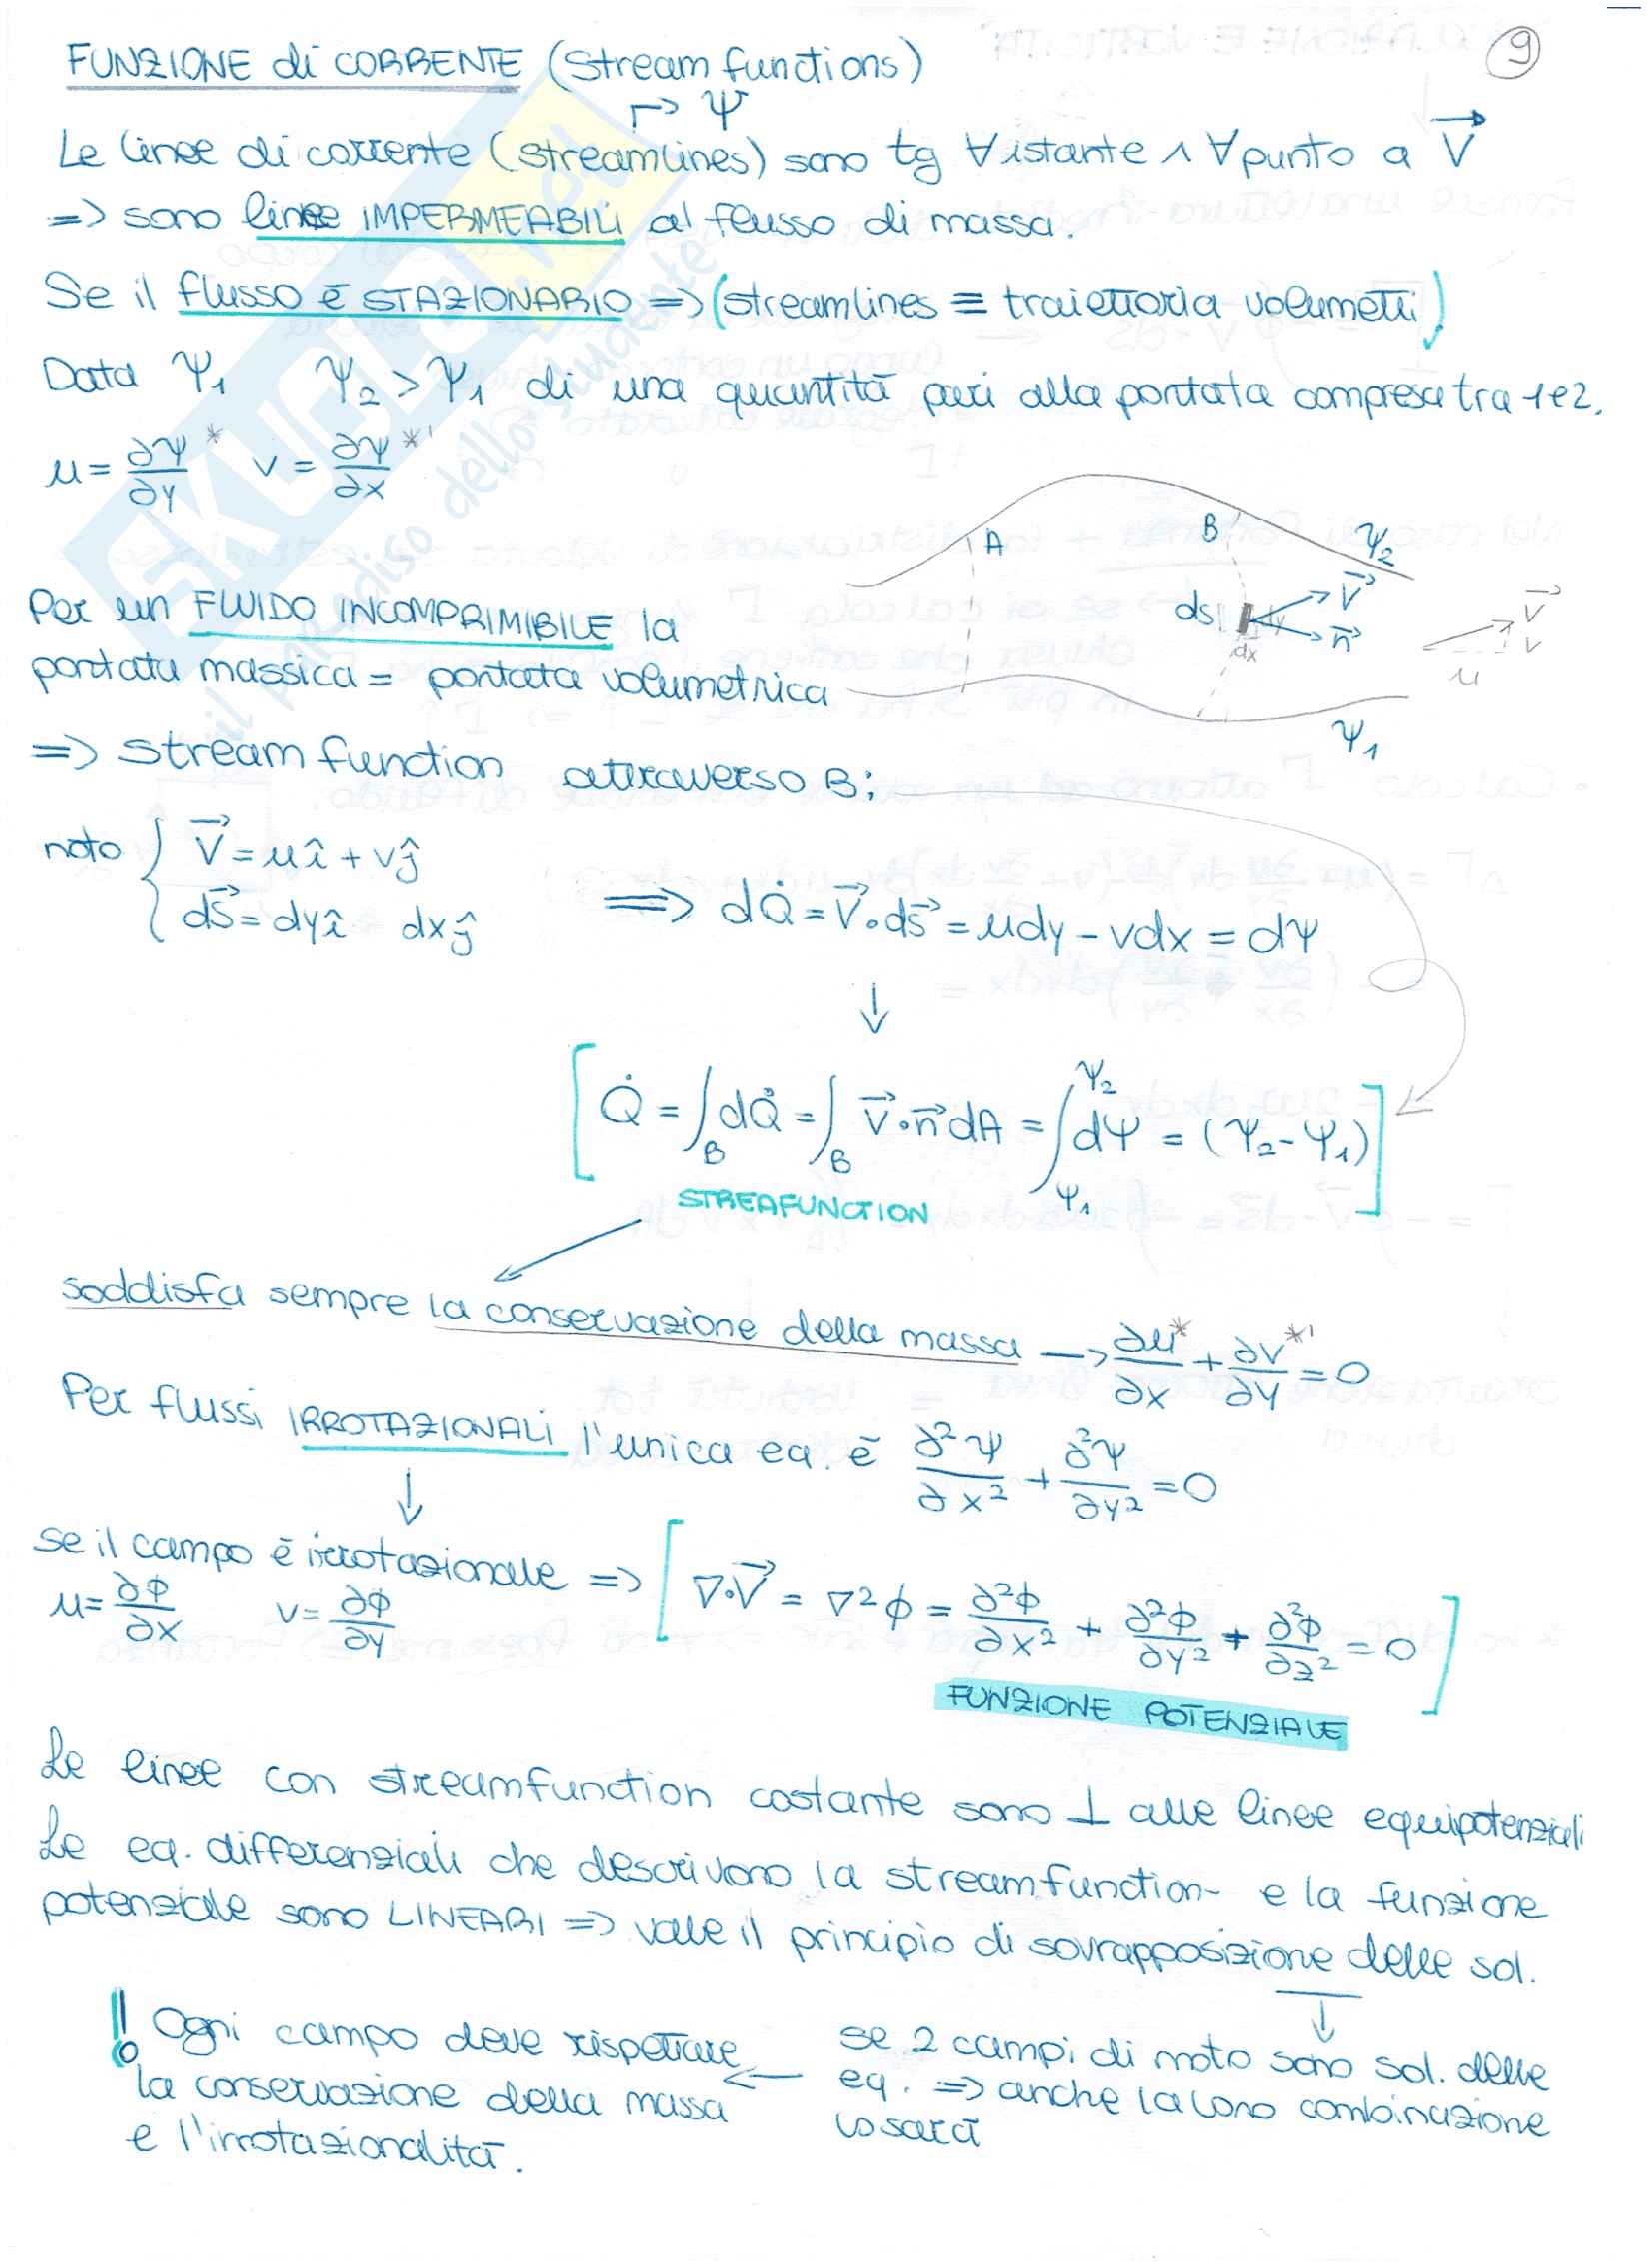 FUNZIONE di CORRENTE (Stream functions)
9
→ Ψ
Le linee di corrente (streamlines) sono tg ∀ istante ∧ ∀ punto a V⃗
=> sono linee IMPERMEABILI al flusso di massa.
Se il flusso è STAZIONARIO => (streamlines ≡ traiettoria volumetti)
Data Ψ₁ Ψ₂ > Ψ₁ di una quantità pari alla portata compresa tra 1 e 2.
u = ∂Ψ/∂y * v = ∂Ψ/∂x *'
A B Ψ₂
ds V⃗ n⃗ dx
V⃗ v u
Ψ₁
Per un FLUIDO INCOMPRIMIBILE la
portata massica = portata volumetrica
=> stream function attraverso B;
noto { V⃗ = uî + vĵ
ds⃗ = dyî dxĵ
=> dQ̇ = V⃗·ds⃗ = udy - vdx = dΨ
↓
[ Q̇ = ∫_B dQ̇ = ∫_B V⃗·n⃗ dA = ∫_Ψ₁^Ψ₂ dΨ = (Ψ₂ - Ψ₁) ]
STREAFUNCTION
soddisfa sempre la conservazione della massa → ∂u*/∂x + ∂v*'/∂y = 0
Per flussi IRROTAZIONALI l'unica eq. è ∂²Ψ/∂x² + ∂²Ψ/∂y² = 0
↓
se il campo è irrotazionale => [ ∇·V⃗ = ∇²ϕ = ∂²ϕ/∂x² + ∂²ϕ/∂y² + ∂²ϕ/∂z² = 0 ]
u = ∂ϕ/∂x v = ∂ϕ/∂y
FUNZIONE POTENZIALE
Le linee con streamfunction costante sono ⊥ alle linee equipotenziali
Le eq. differenziali che descrivono la streamfunction- e la funzione
potenziale sono LINEARI => vale il principio di sovrapposizione delle sol.
↓
se 2 campi di moto sono sol. delle
eq. => anche la loro combinazione
lo sarà
←
!! Ogni campo deve rispettare
la conservazione della massa
e l'irrotazionalità.
SKUOLA.net
il paradiso dello studente